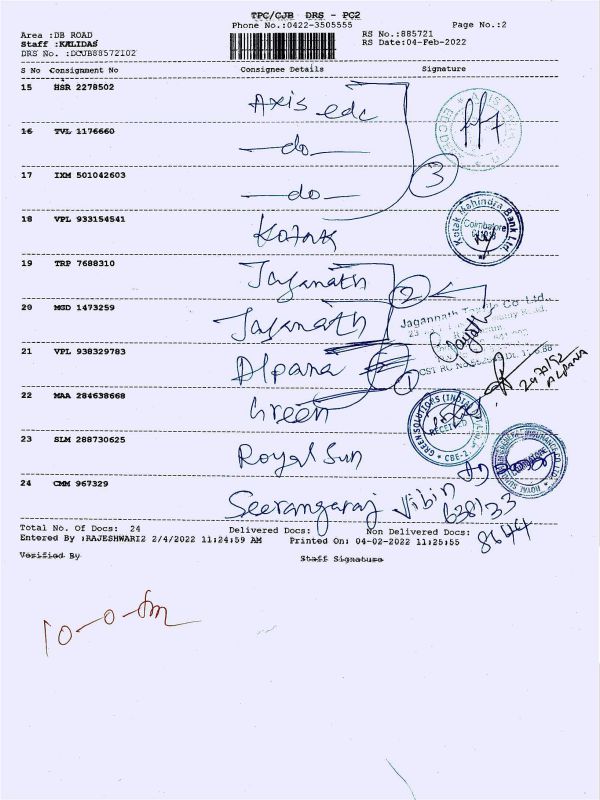 TPC/CJB DRS - PC2
Phone No.:0422-3505555
Page No.:2
Area :DB ROAD
RS No.:885721
Staff :KALIDAS
RS Date:04-Feb-2022
DRS No. :DCJB88572102
S No Consignment No Consignee Details Signature
15 HSR 2278502 Axis edc
16 TVL 1176660 —do—
17 IXM 501042603 —do— 3
18 VPL 933154541 Kotak
Kotak Mahindra Bank Ltd. Coimbatore
19 TRP 7688310 Jaganath
2
20 MGD 1473259 Jaganath
Jagannath Textile Co. Ltd.,
21 VPL 938329783 Alpana
1
ALPANA
22 MAA 284638668 Green
GREEN SOLUTIONS (INDIA) RECEIVED CBE-2
23 SLM 288730625 Royal Sun
24 CMM 967329 Seerangaraj Vibin
Total No. Of Docs: 24 Delivered Docs: Non Delivered Docs:
8644
Entered By :RAJESHWARI2 2/4/2022 11:24:59 AM Printed On: 04-02-2022 11:25:55
Verified By Staff Signature